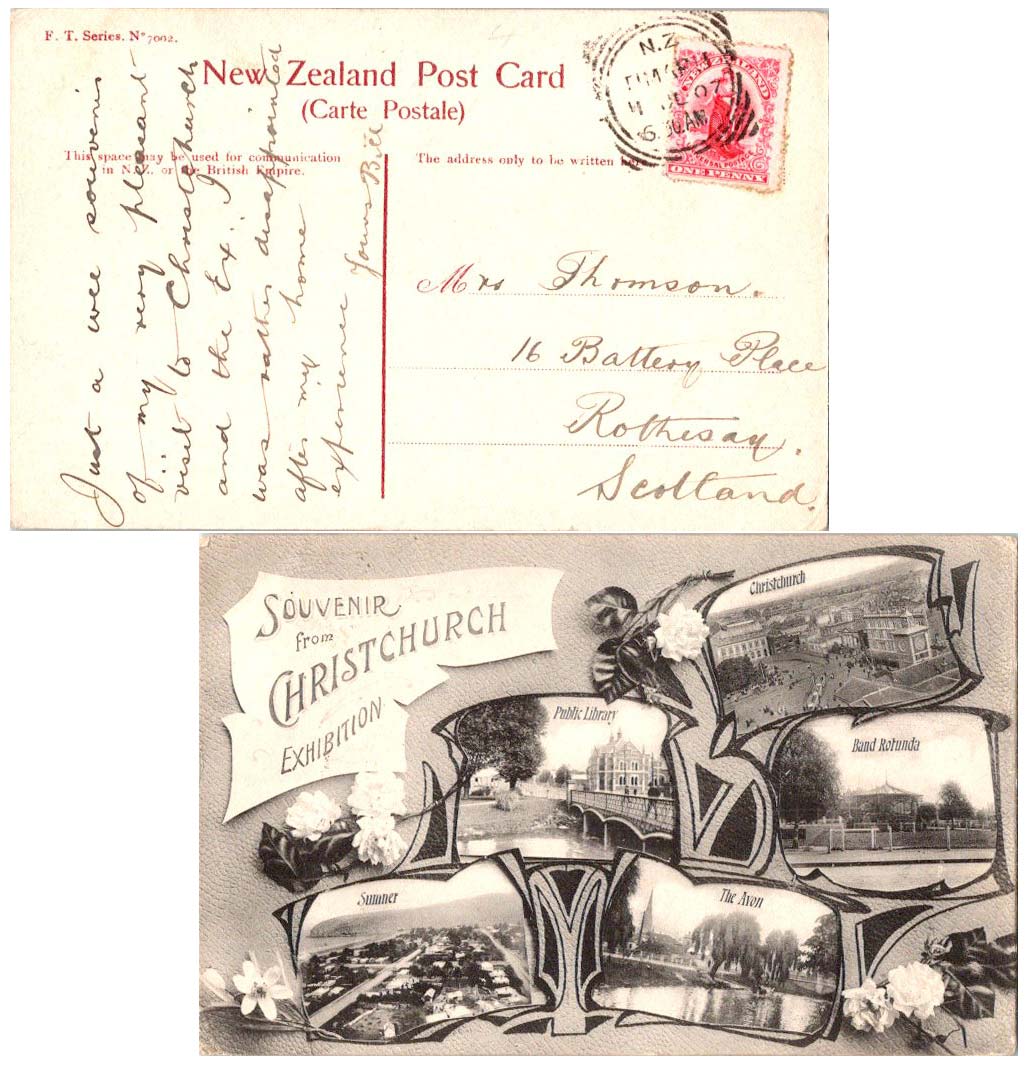 F. T. Series. Nº 7002.
New Zealand Post Card
(Carte Postale)
This space may be used for communication
in N.Z. or the British Empire.
The address only to be written here.
N.Z
11 DE 07
6.30AM
NEW ZEALAND
UNIVERSAL POSTAGE
ONE PENNY
Just a wee souvenir
of my very pleasant
visit to Christchurch
and the Ex: I
was rather disappointed
after my home
experience
Yours Bill
Mrs Thomson.
16 Battery Place
Rothesay.
Scotland.
SOUVENIR
from
CHRISTCHURCH
EXHIBITION
Christchurch
Public Library
Band Rotunda
Sumner
The Avon